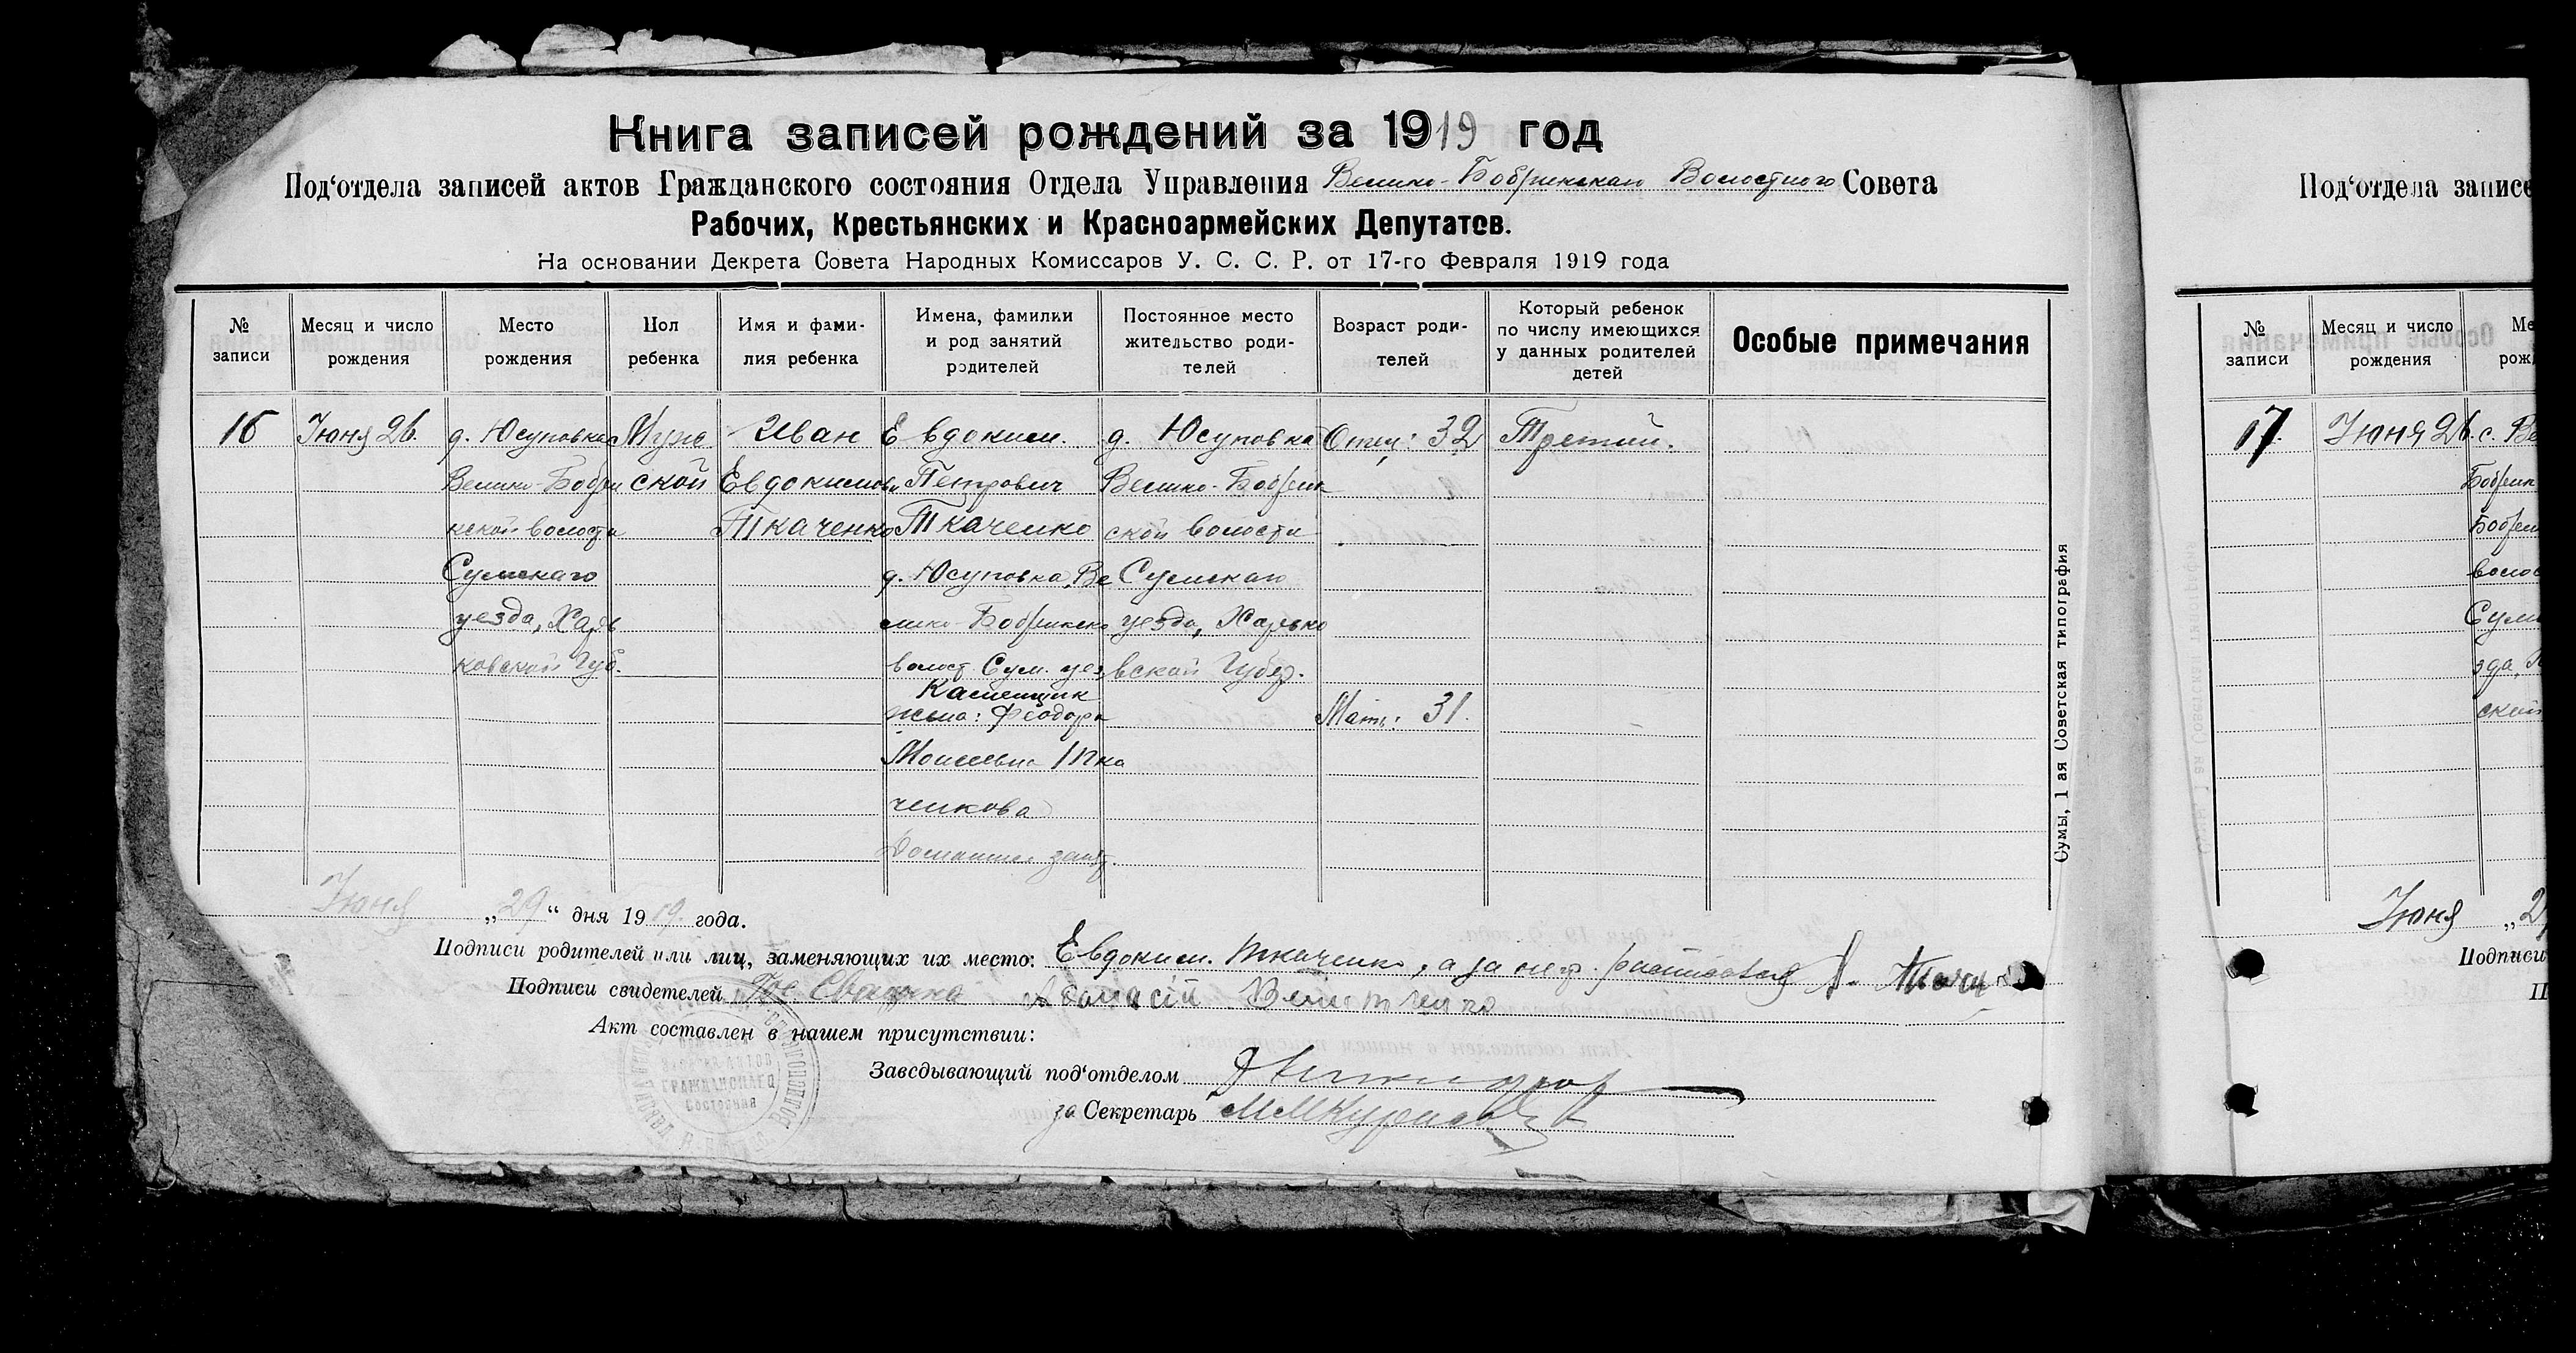 Книга записей рождений за 1919 год
Под‘отдела записей актов Гражданского состояния Отдела Управления Велико-Бобрикскаго Волостного Совета
Рабочих, Крестьянских и Красноармейских Депутатов.
На основании Декрета Совета Народных Комиссаров У. С. С. Р. от 17-го Февраля 1919 года
№ записи
Месяц и число рождения
Место рождения
Пол ребенка
Имя и фами-
лия ребенка
Имена, фамилии
и род занятий
родителей
Постоянное место
жительство роди-
телей
Возраст роди-
телей
Который ребенок
по числу имеющихся
у данных родителей
детей
Особые примечания
16
Июня 26.
д. Юсуповка
Велико-Бобри
кской волости
Сумскаго
уезда, Харь
ковской Губ.
Муж
ской
Иван
Евдокимов
Ткаченко
Евдоким.
Петрович
Ткаченко
д. Юсуповка, Ве
лико-Бобрикско
волост. Сум. уез
Каменщик
жена: Феодора
Моисеевна Тка
ченкова
Домашнее занят.
д. Юсуповка
Велико-Бобрик
ской волости
Сумскаго
уезда, Харько
вской Губер.
Отец: 32
Мать: 31.
Третий.
Сумы, 1 ая Советская типография
Июня „29“ дня 1919. года.
Подписи родителей или лиц, заменяющих их место: Евдоким. Ткаченко, а за негр.
Подписи свидетелей Афанасій
Акт составлен в нашем присутствии:
Заведывающий под‘отделом
за Секретарь
записи актов
гражданского
состояния
Под‘отдела записе
№ записи
Месяц и число рождения
Ме
рож
17.
Июня 26.
с. Ве
Бобрик
Бобри
волос
Сумс
зда,
ской
Июня „2
Подписи
П